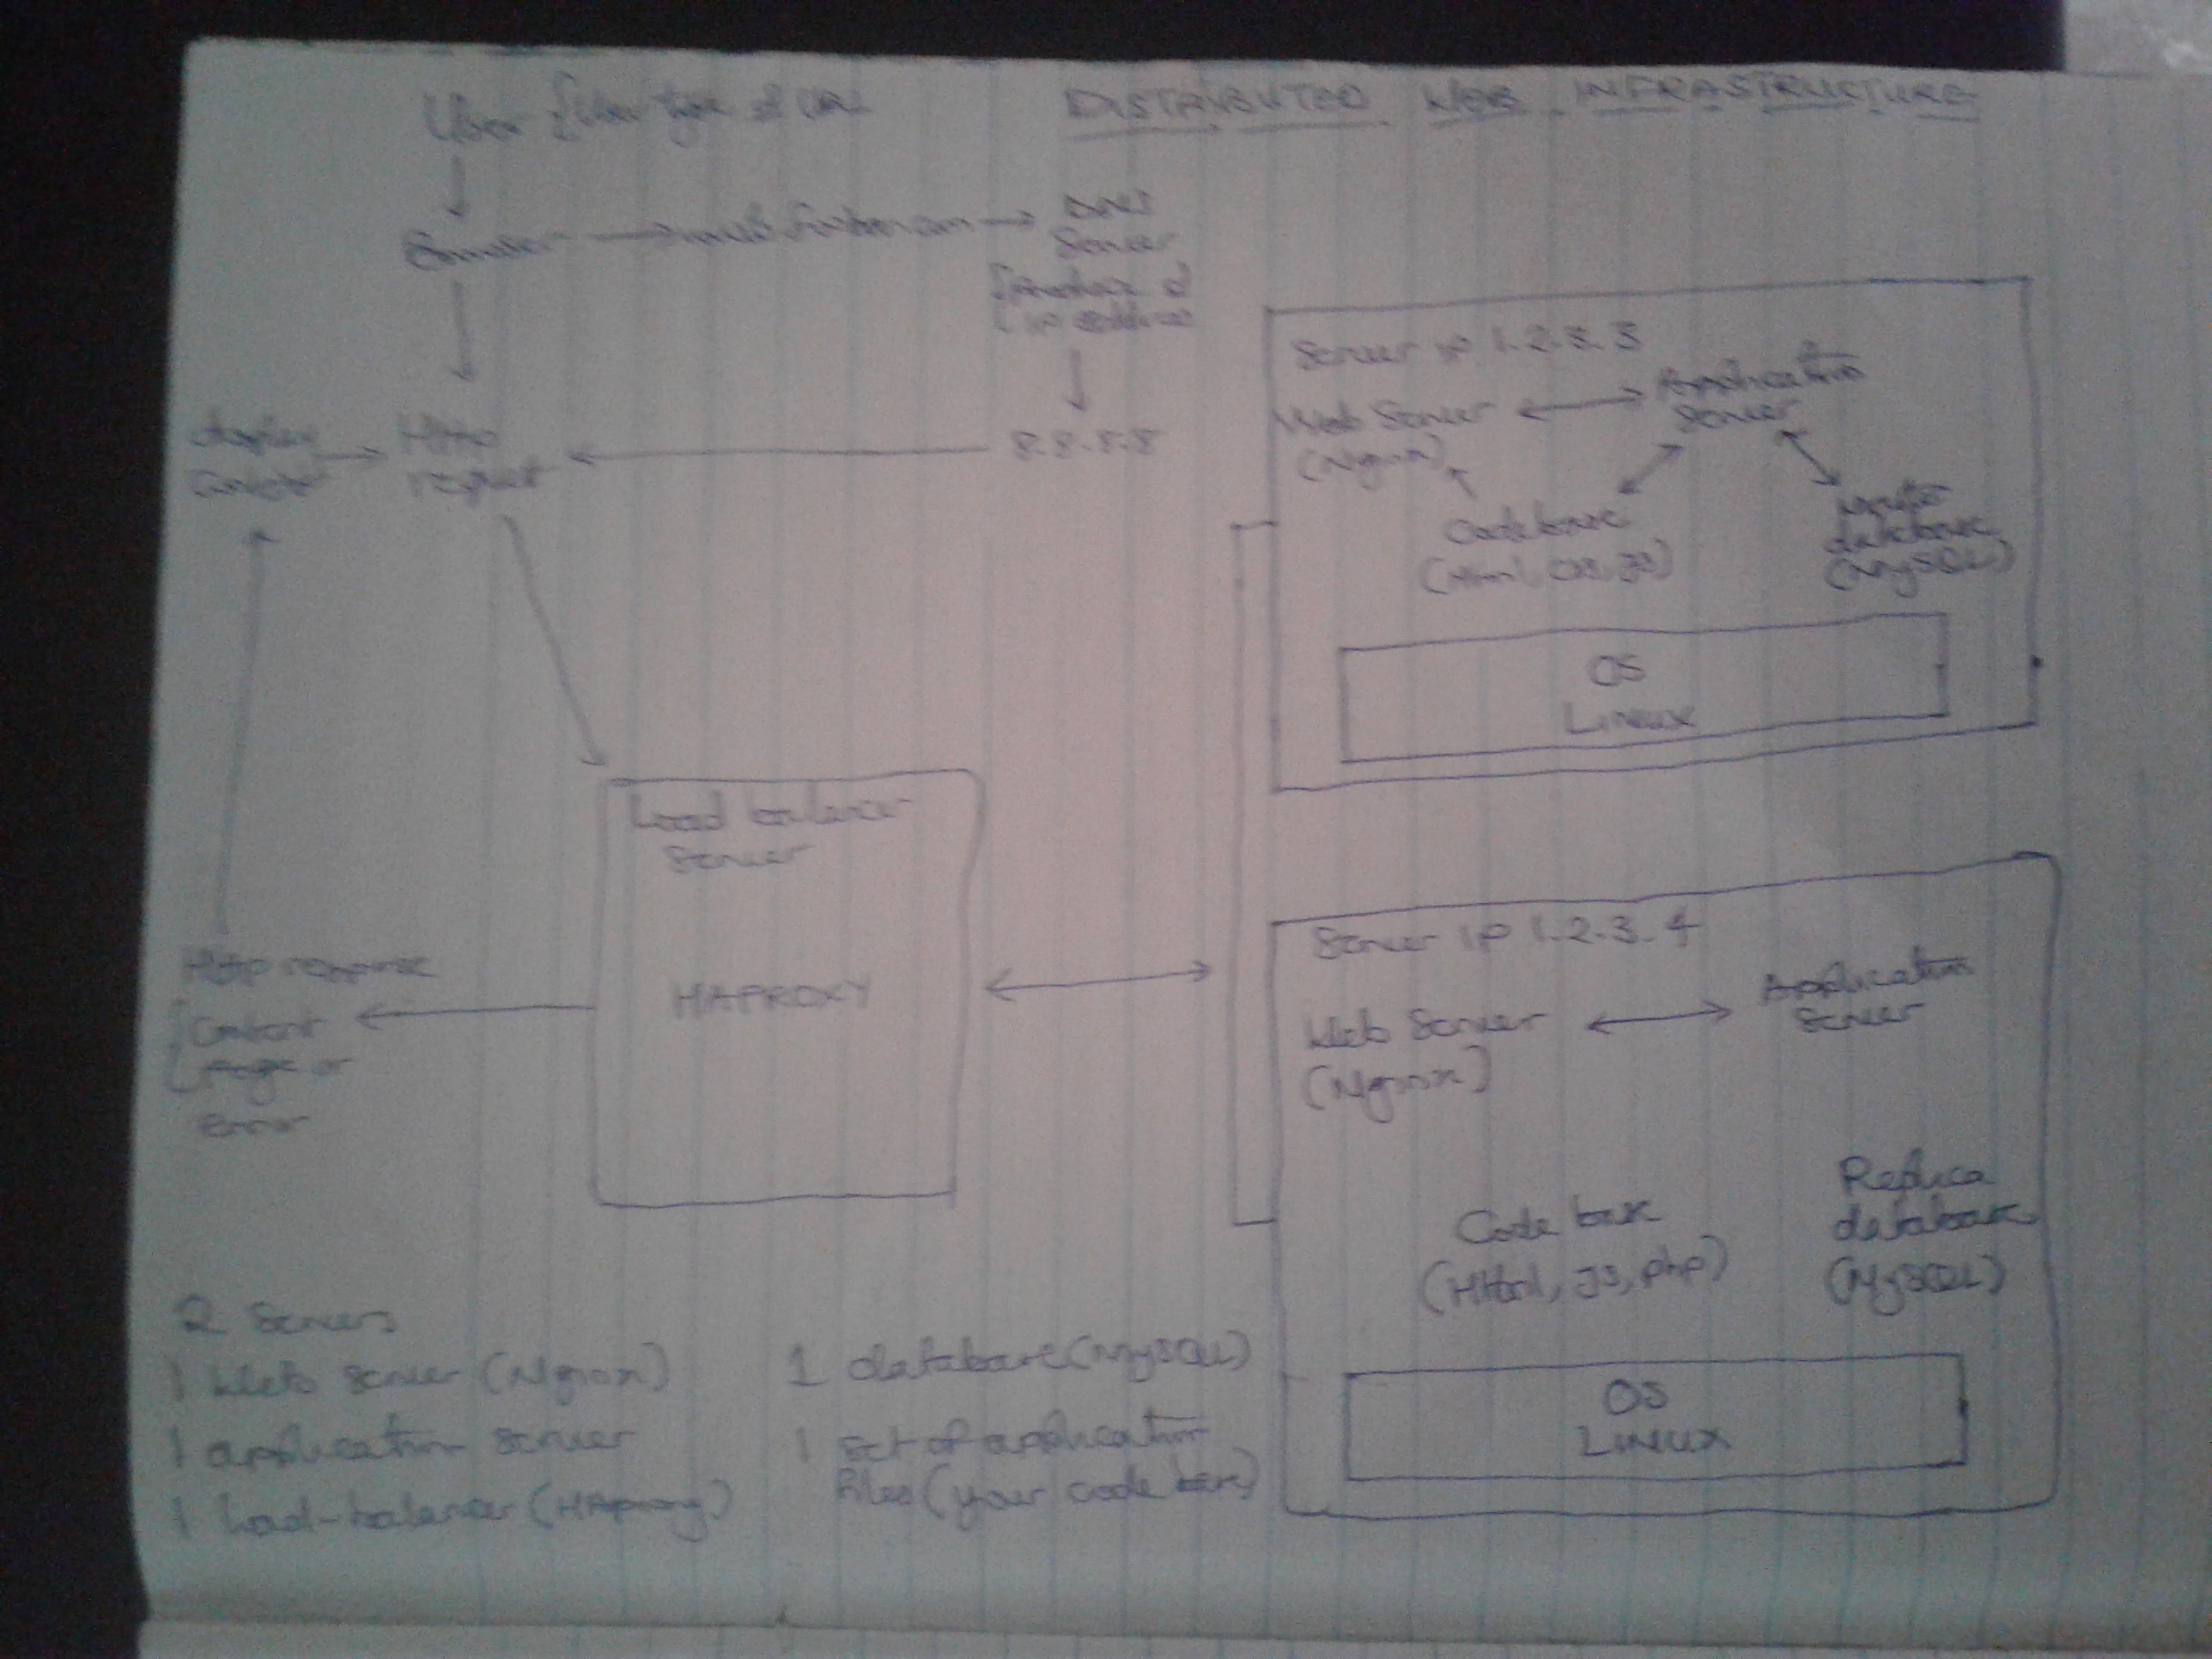 DISTRIBUTED WEB INFRASTRUCTURE
User type of URL
DNS
Server
IP address
8.8.8.8
display
content
Http
request
Load balancer
Server
HAPROXY
Http response
Content
page or
error
Server IP 1.2.3.3
Web Server
(Nginx)
Application
Server
Code base
database
(MySQL)
OS
LINUX
Server IP 1.2.3.4
Web Server
(Nginx)
Application
Server
Code base
(Html, JS, php)
Replica
database
(MySQL)
OS
LINUX
2 Servers
1 Web server (Nginx)
1 application server
1 load-balancer (HAproxy)
1 database (MySQL)
1 set of application
files (your code base)